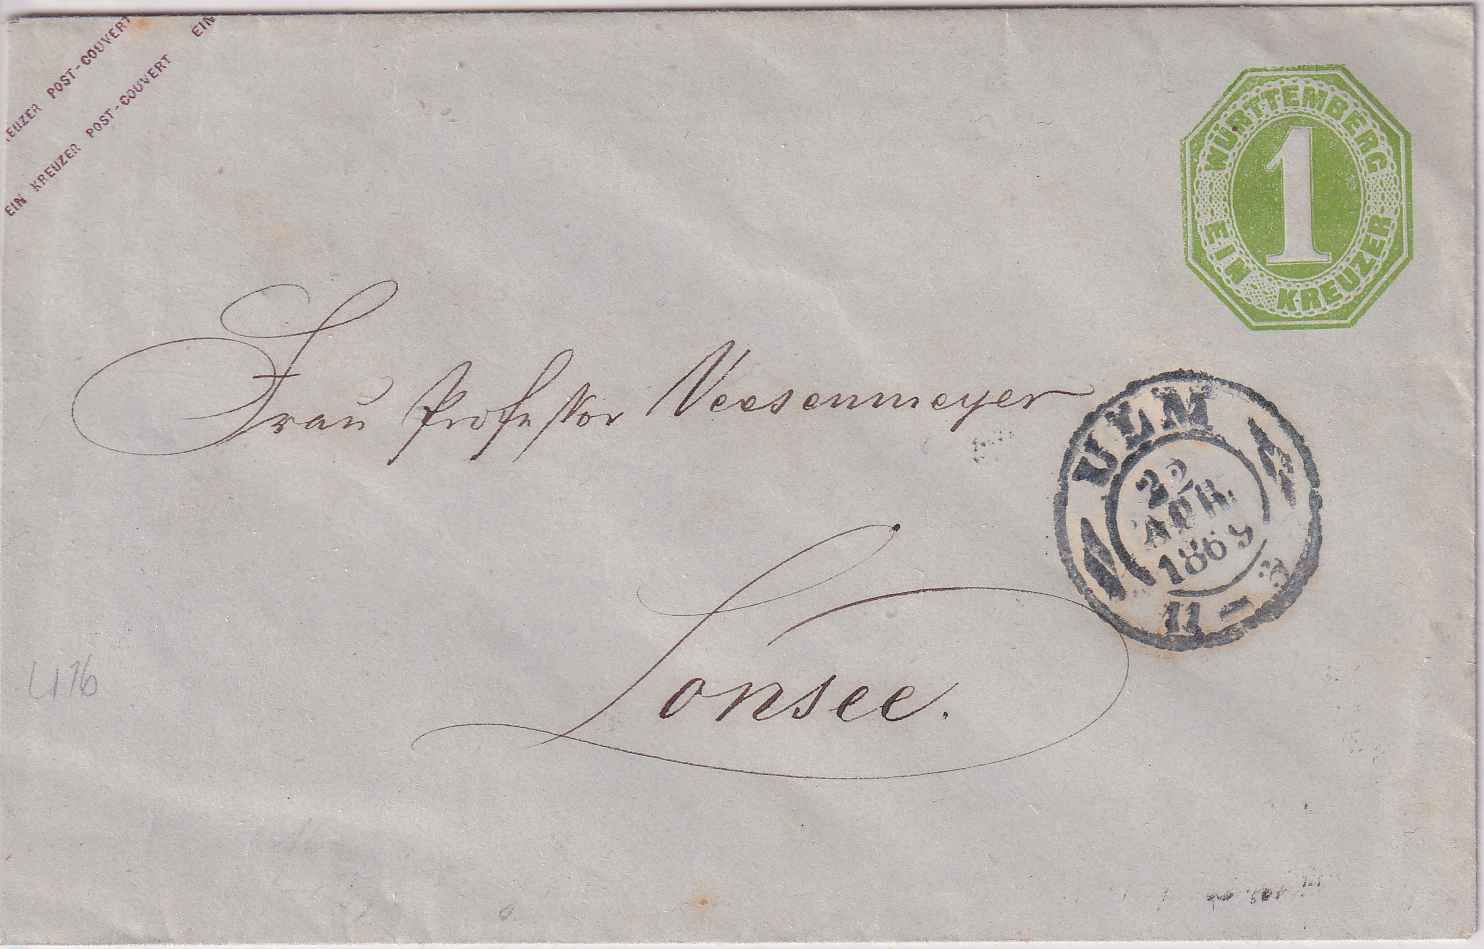 EUZER POST-COUVERT
EIN KREUZER POST-COUVERT EIN
WÜRTTEMBERG
1
EIN KREUZER
Frau Professor Veesenmeyer
ULM
22
APR
1869
11 - 3
Lonsee.
U76